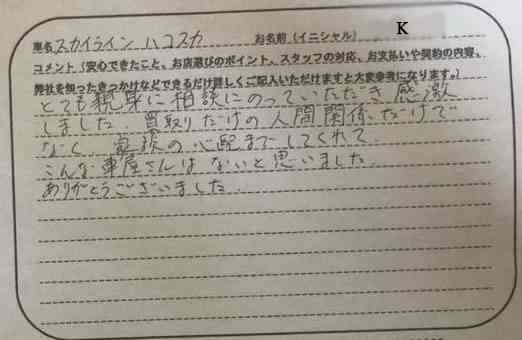 車名 スカイライン ハコスカ お名前（イニシャル） K
コメント（安心できたこと、お店選びのポイント、スタッフの対応、お支払いや契約の内容、
弊社を知ったきっかけなどできるだけ詳しくご記入いただけますと大変参考になります。）
とても親身に相談にのっていただき感激
しました 買取りだけの人間関係だけで
なく 家族の心配までしてくれて
こんな車屋さんはないと思いました。
ありがとうございました。